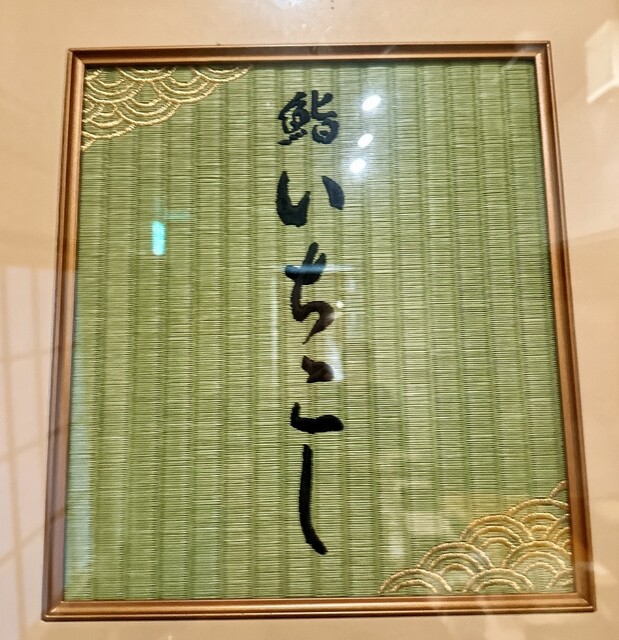 鮨いちこし